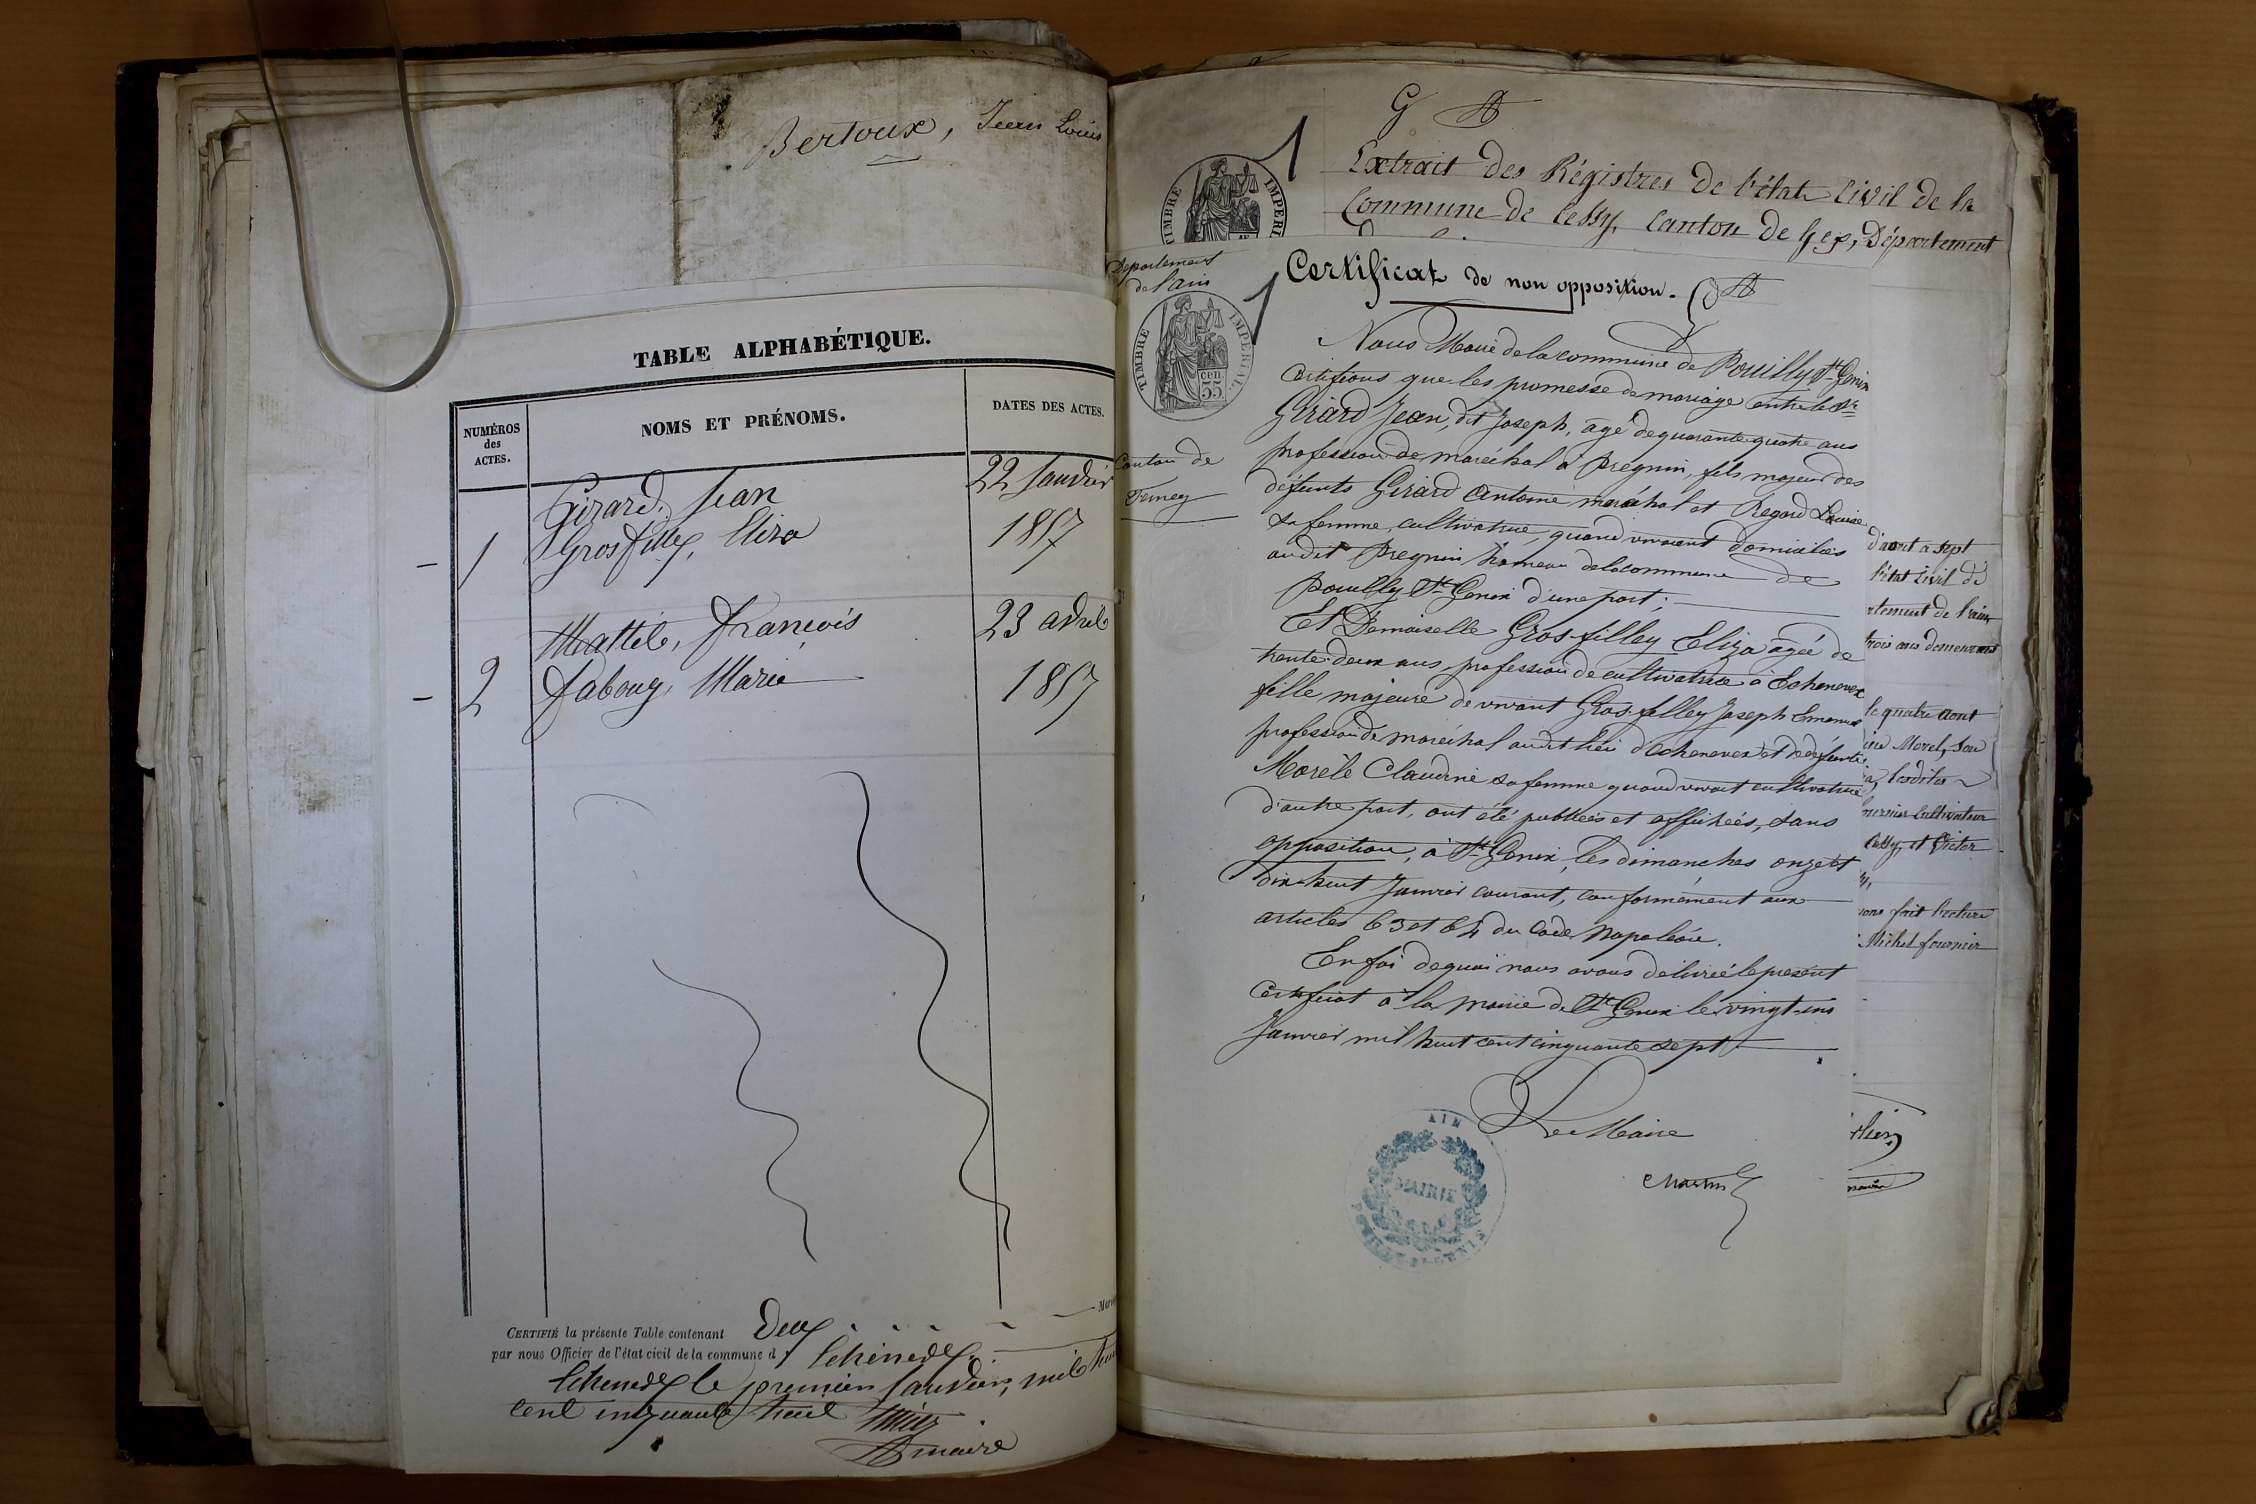 Bertoux, Jean Louis
TABLE ALPHABÉTIQUE.
NUMÉROS
des
ACTES.
NOMS ET PRÉNOMS.
DATES DES ACTES.
Girard, Jean
22 Janvier
1
Grosfilley, Eliza
1857
Mattil, François
23 avril
2
Dabouy, Marie
1857
CERTIFIÉ la présente Table contenant Deux
par nous Officier de l'état civil de la commune d'Echenevex
Echenevex le premier Janvier, mil huit
cent cinquante huit
maire
G
Extrait des Régistres de l'état Civil de la
Commune de Cessy, Canton de Gex, Département
TIMBRE IMPERIAL
Département
de l'ain
TIMBRE IMPERIAL
cen.
35
Canton de
Ferney
Certificat de non opposition.
Nous Maire de la commune de Pouilly St. Genix
Certifions que les promesse de mariage entre le Sr
Girard Jean, dit Joseph, âgé de quarante quatre ans
profession de maréchal à Pregnin, fils majeur des
défunts Girard Antoine maréchal et Regard Louise
sa femme, cultivatrice, quand vivaient domiciliés
audit Pregnin hameau de la commune de
Pouilly St. Genix d'une part;
Et Demoiselle Gros-filley Eliza agée de
trente deux ans, profession de cultivatrice à Echenevex
fille majeure de vivant Gros-filley Joseph Emanuel
profession de maréchal audit lieu d'echenevex et de défunte
Morèle Claudine sa femme quand vivait cultivatrice
d'autre part, ont été publiées et affichées, sans
opposition, à St. Genix, les dimanches onze et
dix-huit Janvier courant, conformément aux
articles 63 et 64 du Code Napoléon.
En foi de quoi nous avons délivré le présent
Certificat à la Mairie de St. Genix le vingt-un
Janvier mil huit cent cinquante sept
Le Maire
AIN
MAIRIE
d'aout a sept
l'état Civil de
rtement de l'ain
trois ans demeurant
le quatre aout
Morel, son
lesdites
Cultivateur
Cessy, et Victor
fait lecture
Michel fournier